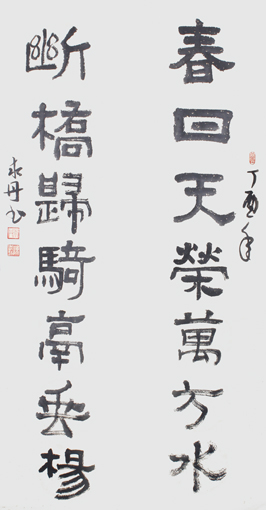 丁酉年
春日天榮萬方水
斷橋歸騎鬲垂楊
丹书